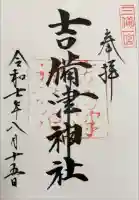 奉拝
三備一宮
吉備津神社
令和七年八月十五日